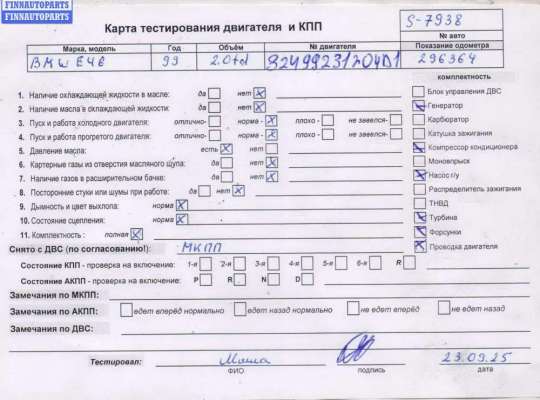 FINNAUTOPARTS
FINNAUTOPARTS
Карта тестирования двигателя и КПП
S-7938
№ авто
Марка, модель Год Объём № двигателя Показание одометра
BMW E46 99 2.0td 82499231204D1 296364
комплектность
1. Наличие охлаждающей жидкости в масле: да нет
2. Наличие масла в охлаждающей жидкости: да нет
3. Пуск и работа холодного двигателя: отлично- норма - плохо - не завелся-
4. Пуск и работа прогретого двигателя: отлично- норма - плохо - не завелся-
5. Давление масла: есть нет
6. Картерные газы из отверстия масляного щупа: да нет
7. Наличие газов в расширительном бачке: да нет
8. Посторонние стуки или шумы при работе: да нет
9. Дымность и цвет выхлопа: норма
10. Состояние сцепления: норма
11. Комплектность : полная
Блок управления ДВС
Генератор
Карбюратор
Катушка зажигания
Компрессор кондиционера
Моновпрыск
Насос г/у
Распределитель зажигания
ТНВД
Турбина
Форсунки
Проводка двигателя
Снято с ДВС (по согласованию!): МКПП
Состояние КПП - проверка на включение: 1-я 2-я 3-я 4-я 5-я 6-я R
Состояние АКПП - проверка на включение: P R N D
Замечания по МКПП:
Замечания по АКПП: едет вперёд нормально едет назад нормально не едет вперёд не едет назад
Замечания по ДВС:
Тестировал: Миша 23.09.25
ФИО подпись дата